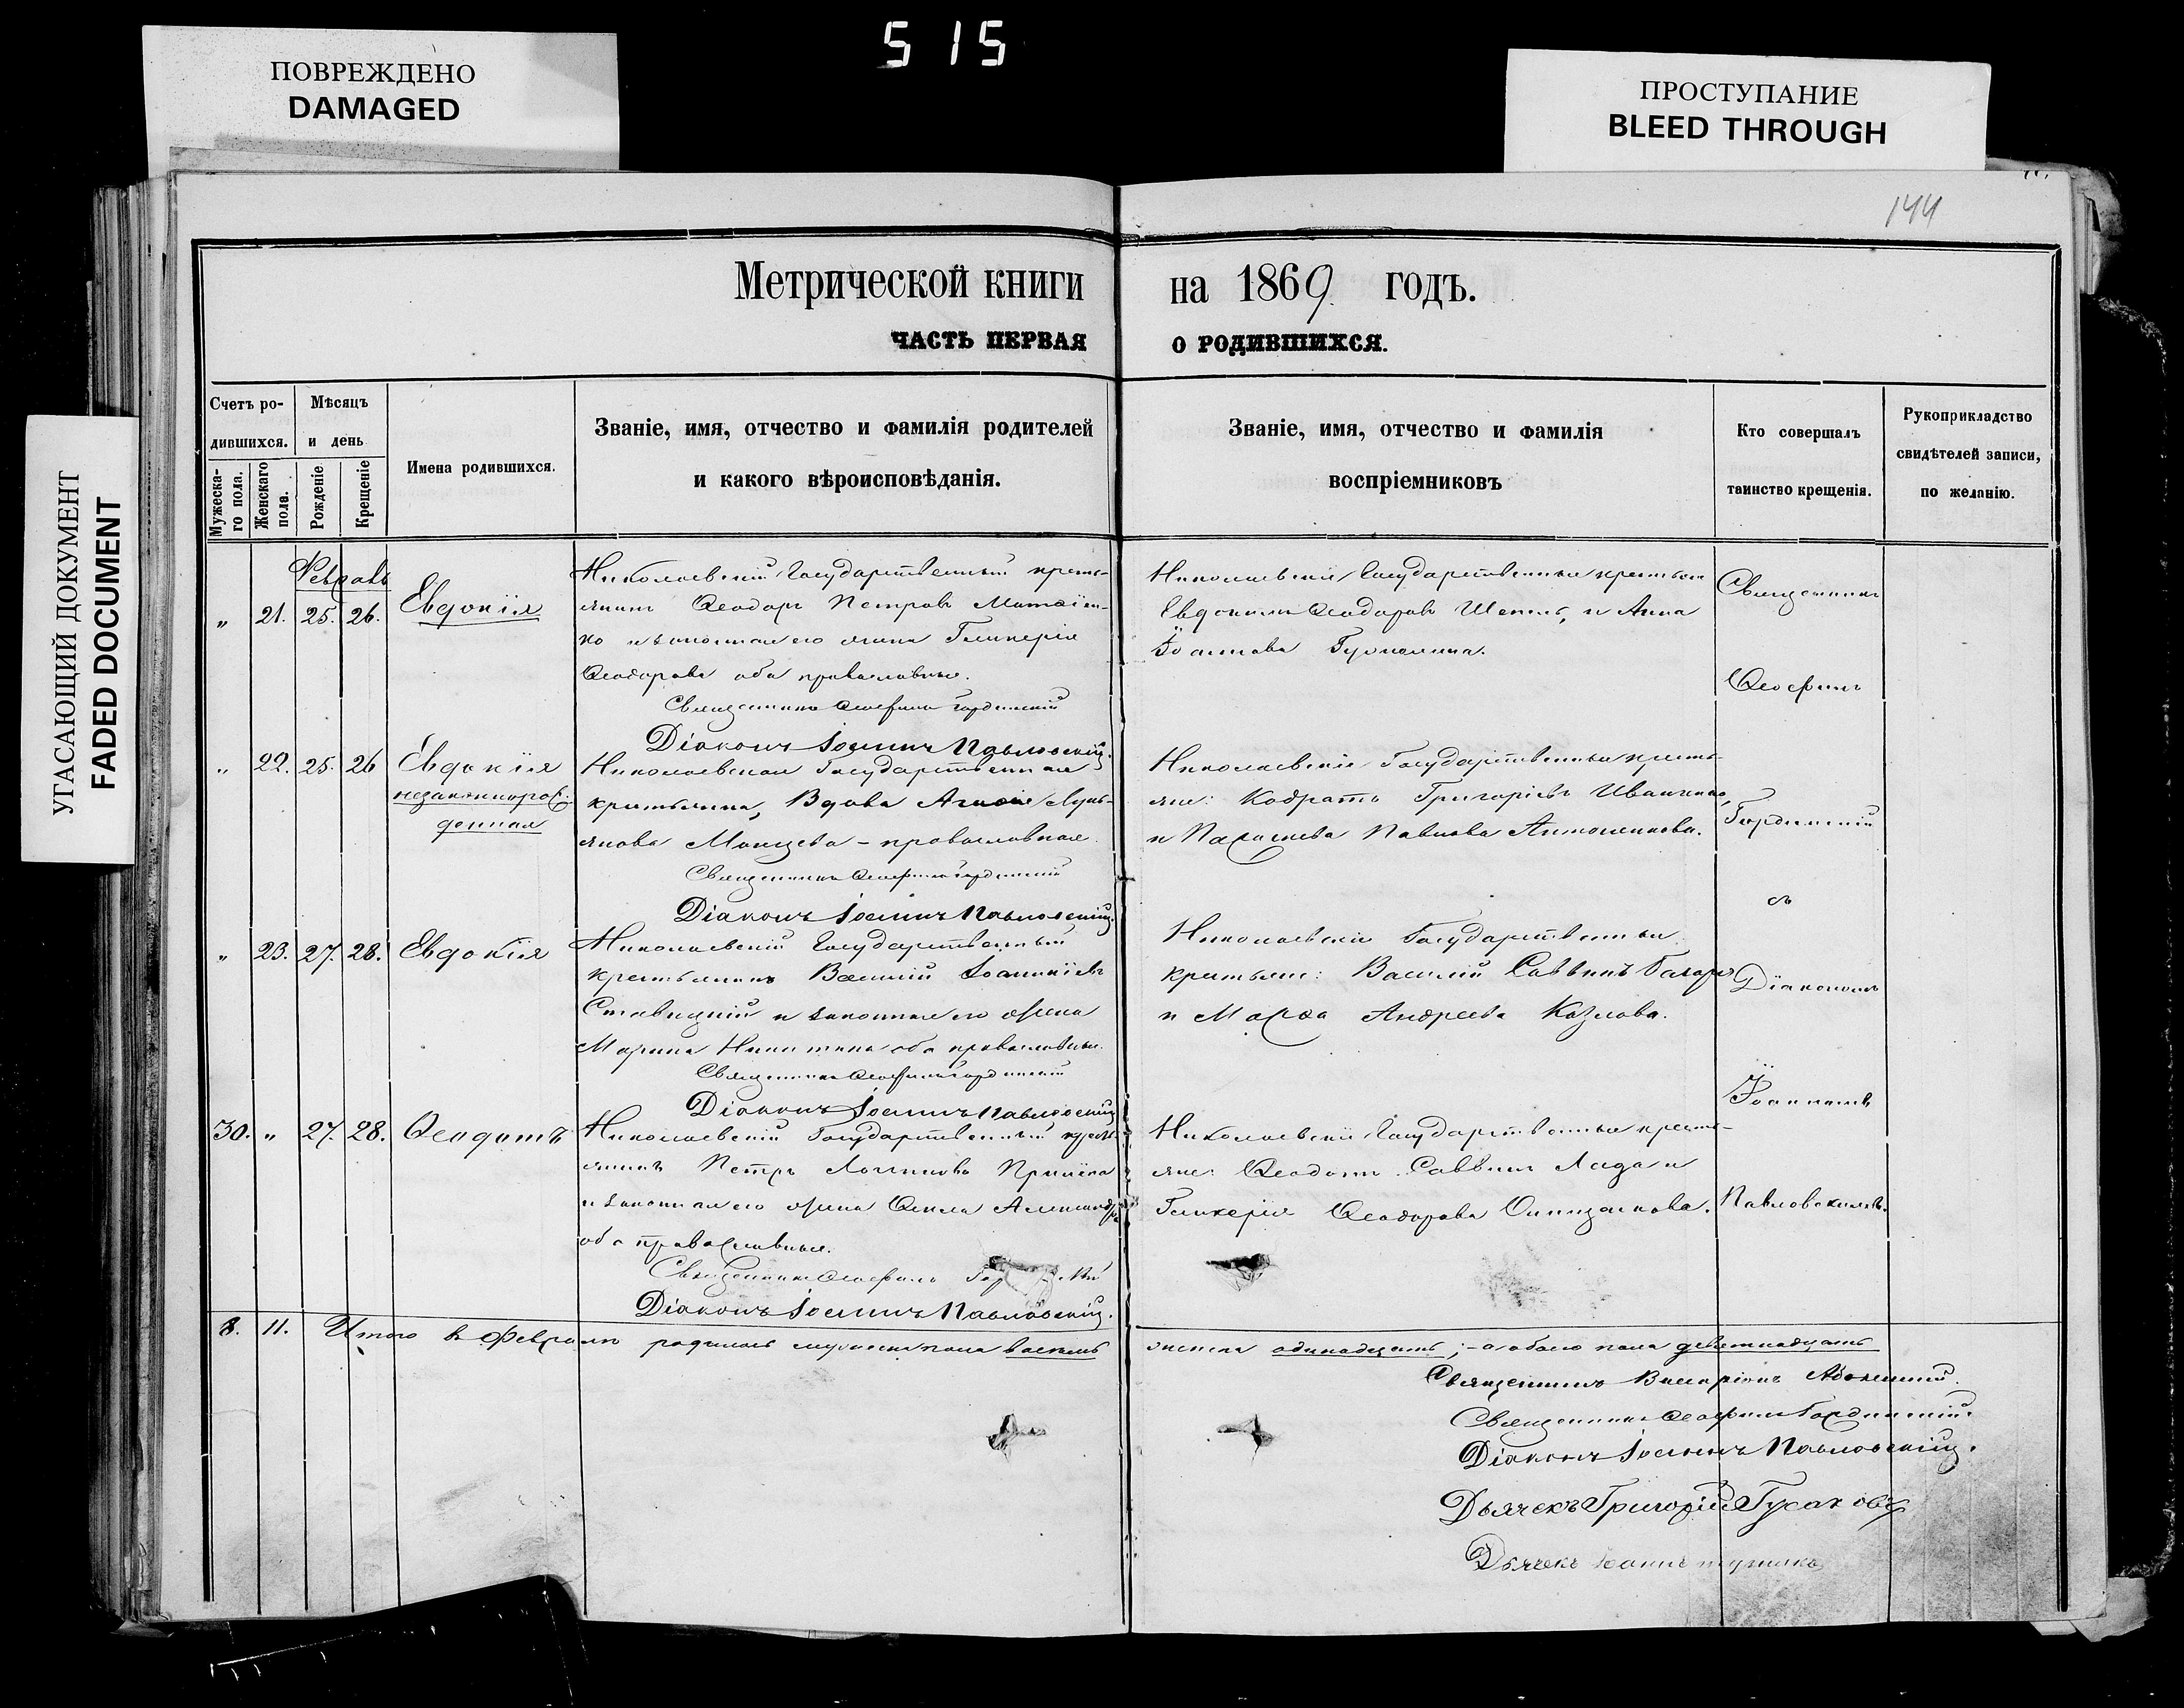 515
ПОВРЕЖДЕНО
DAMAGED
ПРОСТУПАНИЕ
BLEED THROUGH
УГАСАЮЩИЙ ДОКУМЕНТ
FADED DOCUMENT
144
Метрической книги на 1869 годъ.
ЧАСТЬ ПЕРВАЯ О РОДИВШИХСЯ.
Счетъ ро-
дившихся.
Мужеска-
го пола.
Женскаго
пола.
Мѣсяцъ
и день
Рожденіе
Крещеніе
Имена родившихся.
Званіе, имя, отчество и фамилія родителей
и какого вѣроисповѣданія.
Званіе, имя, отчество и фамилія
воспріемниковъ
Кто совершалъ
таинство крещенія.
Рукоприкладство
свидѣтелей записи,
по желанію.
Февраль
„ 21. 25. 26. Евдокія
Николаевскій Государственный кресть-
янинъ Ѳеодоръ Петровъ
и законная его жена Гликерія
Ѳеодорова оба православные.
Священникъ Ѳеофилъ Гординскій
Діаконъ Іоаннъ Павловскій.
Николаевскіе Государственные крестьяне
Ѳеодоровъ и Анна
Священникъ
Ѳеофилъ
„ 22. 25. 26 Евдокія
незаконнорож-
денная
Николаевская Государственная
крестьянка, Вдова Лукь-
янова православная
Священникъ Ѳеофилъ Гординскій
Діаконъ Іоаннъ Павловскій.
Николаевскіе Государственные кресть-
яне: Кодратъ Григоріевъ Иваненко,
и Параскева Павлова Антоненкова.
Гординскій
съ
„ 23. 27. 28. Евдокія
Николаевскій Государственный
крестьянинъ Василій Іоанникіевъ
Ставицкій и законная его жена
Марина Никитина оба православные.
Священникъ Ѳеофилъ Гординскій
Діаконъ Іоаннъ Павловскій
Николаевскіе Государственные
крестьяне: Василій Саввинъ
и Марѳа Андреева Козлова.
Діакономъ
Іоанномъ
30. „ 27. 28. Ѳеодотъ
Николаевскій Государственный кресть-
янинъ Петръ
и законная его жена
оба православные.
Священникъ Ѳеофилъ
Діаконъ Іоаннъ Павловскій.
Николаевскіе Государственные кресть-
яне: Ѳеодотъ Саввинъ и
Гликерія Ѳеодорова
Павловскимъ.
8. 11. Итого въ Февралѣ родилось мужеска пола восемь
женска одинадцать; – а обоего пола девятнадцать
Священникъ
Священникъ Ѳеофилъ Гординскій.
Діаконъ Іоаннъ Павловскій.
Дьячекъ Григорій Гусаковъ
Дьячекъ Іоаннъ